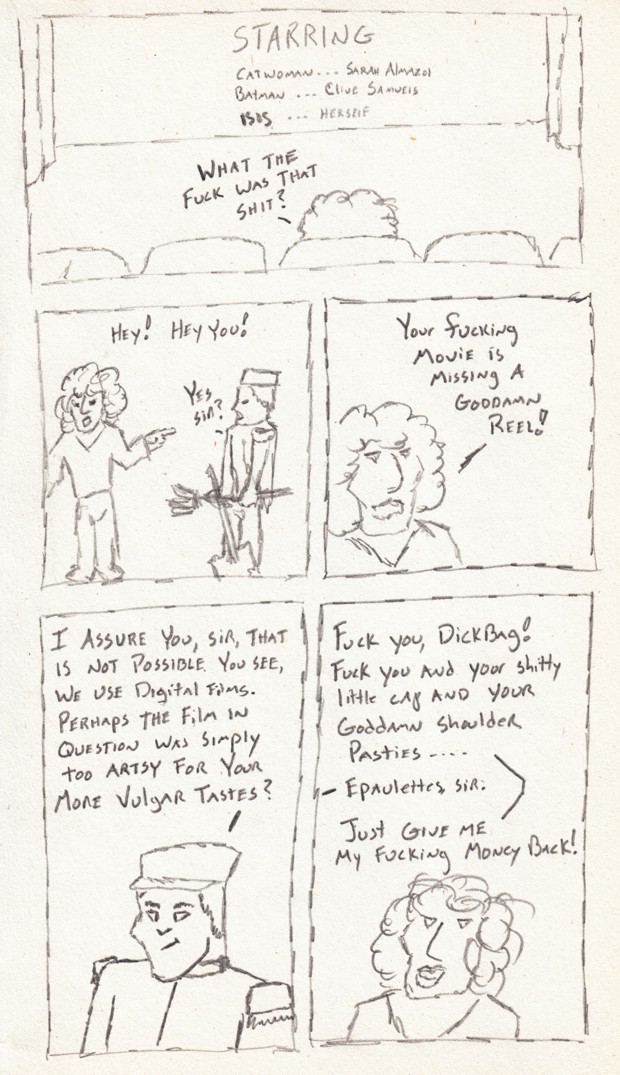 STARRING
CATWOMAN... SARAH ALMAZOI
BATMAN ... CLIVE SAMUELS
ISIS ... HERSELF
WHAT THE
FUCK WAS THAT
SHIT?
HEY! HEY YOU!
YES,
SIR?
YOUR FUCKING
MOVIE IS
MISSING A
GODDAMN
REEL!
I ASSURE YOU, SIR, THAT
IS NOT POSSIBLE. YOU SEE,
WE USE DIGITAL FILMS.
PERHAPS THE FILM IN
QUESTION WAS SIMPLY
TOO ARTSY FOR YOUR
MORE VULGAR TASTES?
FUCK YOU, DICKBAG!
FUCK YOU AND YOUR SHITTY
LITTLE CAP AND YOUR
GODDAMN SHOULDER
PASTIES....
EPAULETTES, SIR.
JUST GIVE ME
MY FUCKING MONEY BACK!